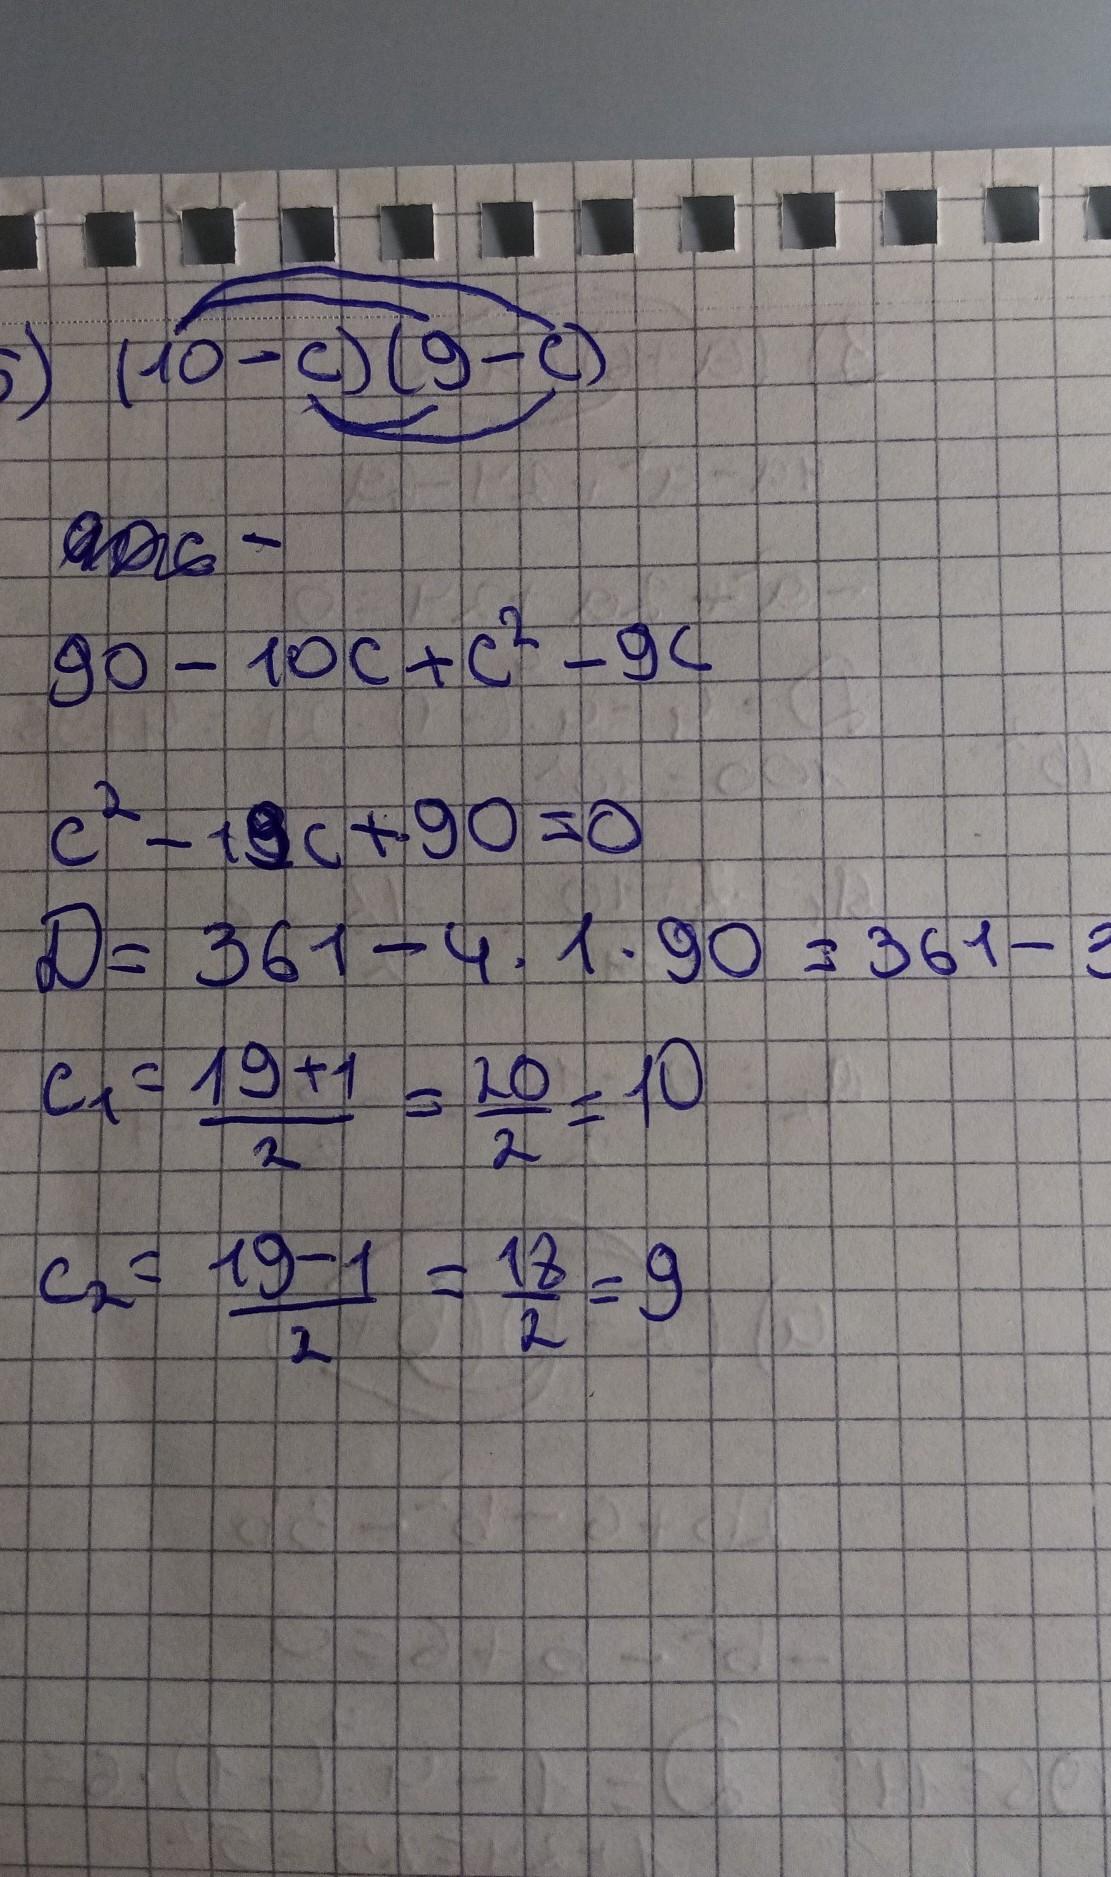 5) (10-c)(9-c)
90-10c+c²-9c
c²-19c+90=0
D= 361-4·1·90=361-3
c₁= \frac{19+1}{2} = \frac{20}{2} = 10
c₂= \frac{19-1}{2} = \frac{18}{2} = 9